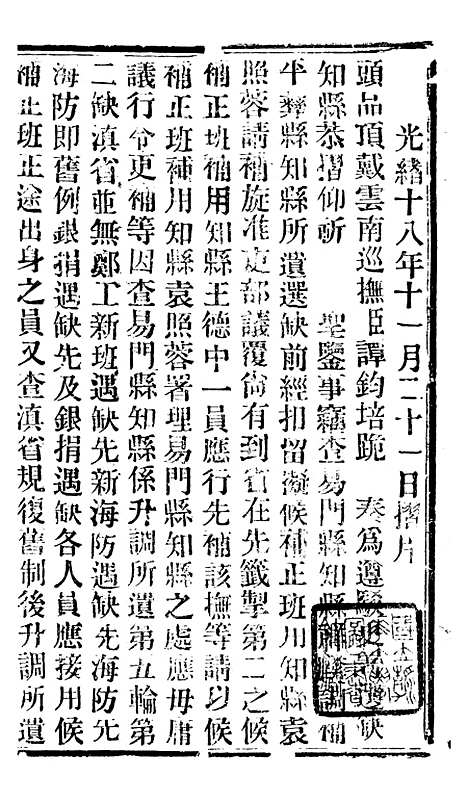 光緒十八年十一月二十一日摺片
頭品頂戴雲南巡撫臣譚鈞培跪 奏為遵 缺
知縣恭摺仰祈 聖鑒事竊查易門縣知縣 調補
平彝縣知縣所遺選缺前經扣留擬候補正班用知縣袁
照蓉請補旋准吏部議覆尙有到省在先籤掣第二之候
補正班補用知縣王德中一員應行先補該撫等請以候
補正班補用知縣袁照蓉署理易門縣知縣之處應毋庸
議行令更補等因查易門縣知縣係升調所遺第五輪第
二缺滇省並無鄭工新班遇缺先新海防遇缺先海防先
海防即舊例銀捐遇缺先及銀捐遇缺各人員應接用候
補正班正途出身之員又查滇省規復舊制後升調所遺